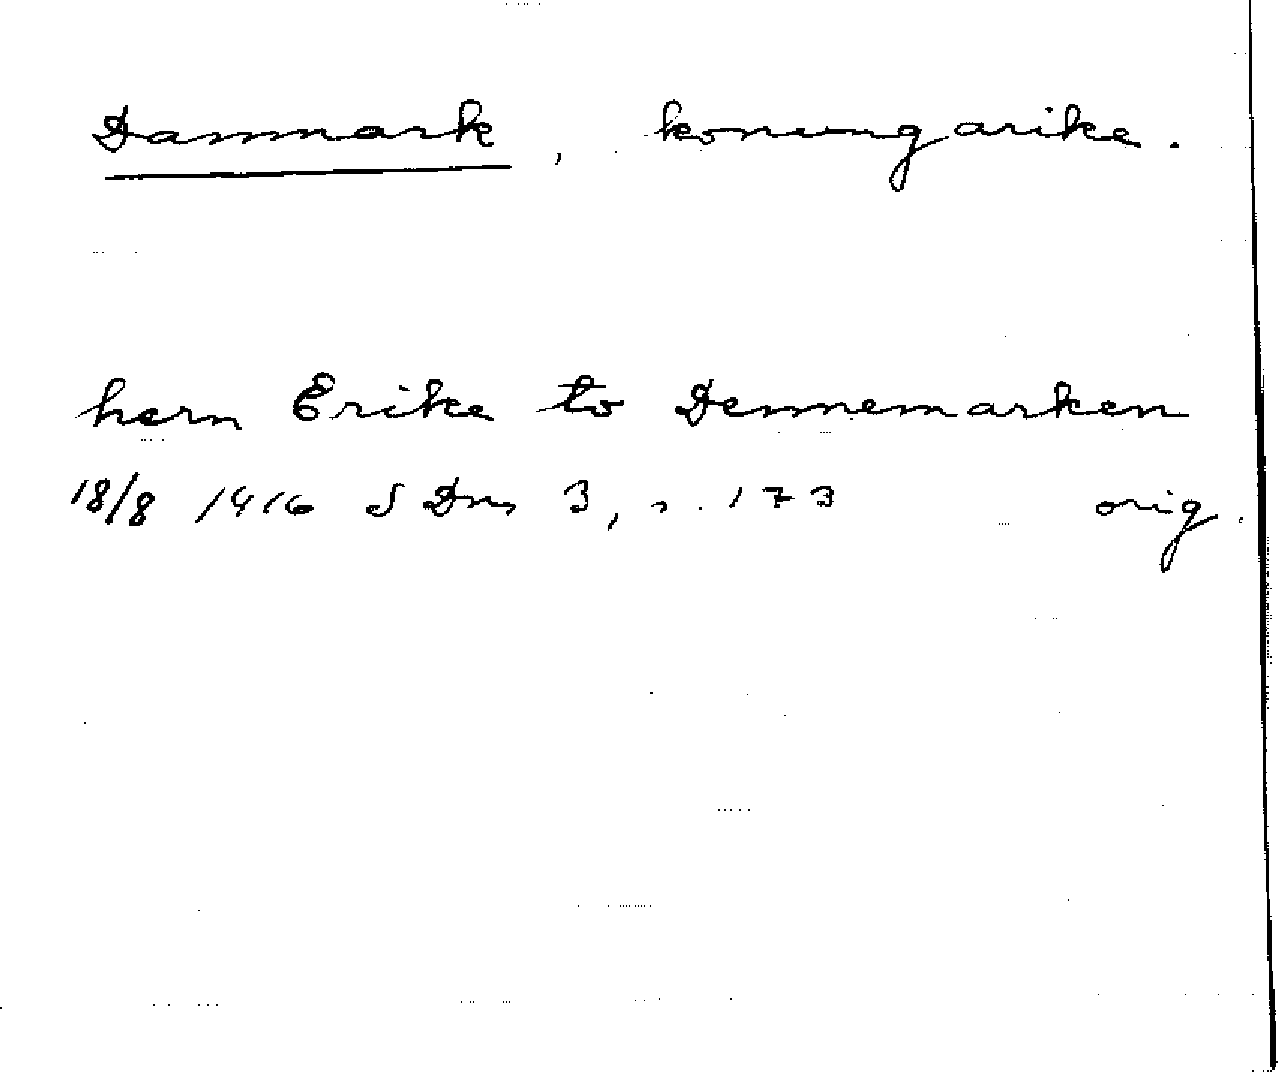 Danmark, konungarike.
hern Erike to Dennemarken
18/8 1416 SDns 3, s. 173 orig.